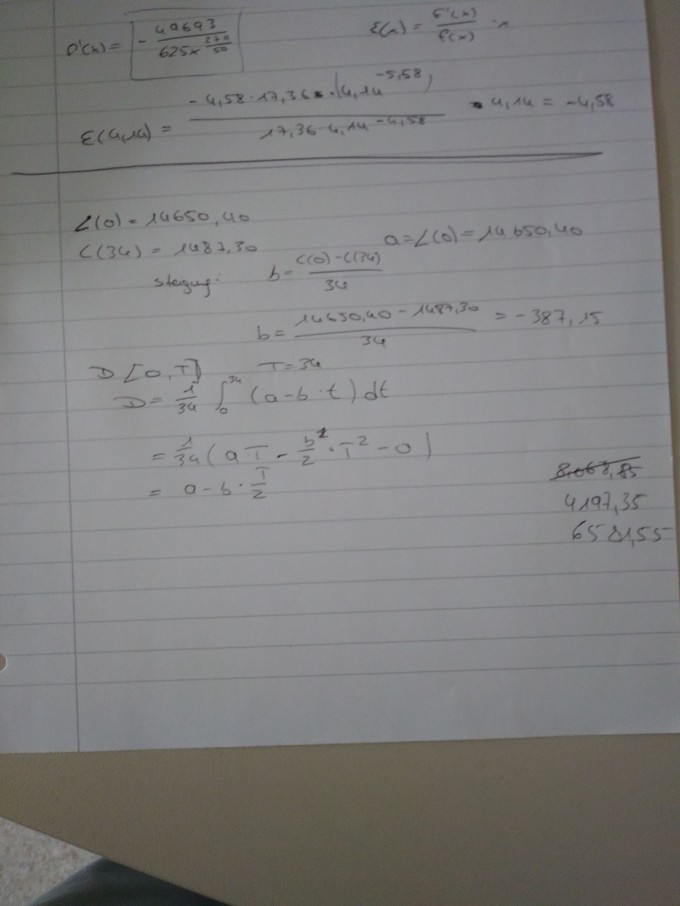 D'(x) = - 49693 / 625x^(279/50)
ε(x) = f'(x) / f(x) · x
ε(4,14) = -4,58 · 17,36 · (4,14^-5,58) / 17,36 · 4,14^-4,58 · 4,14 = -4,58
L(0) = 14650,40
L(34) = 1487,30
a = L(0) = 14650,40
b = L(0) - L(34) / 34
b = 14650,40 - 1487,30 / 34 = -387,15
D [0,T] T = 34
D = 1/34 ∫_0^34 (a - b · t) dt
= 1/34 (aT - b²/2 · T² - 0)
= a - b · T/2
8.068,85
4197,35
6581,55